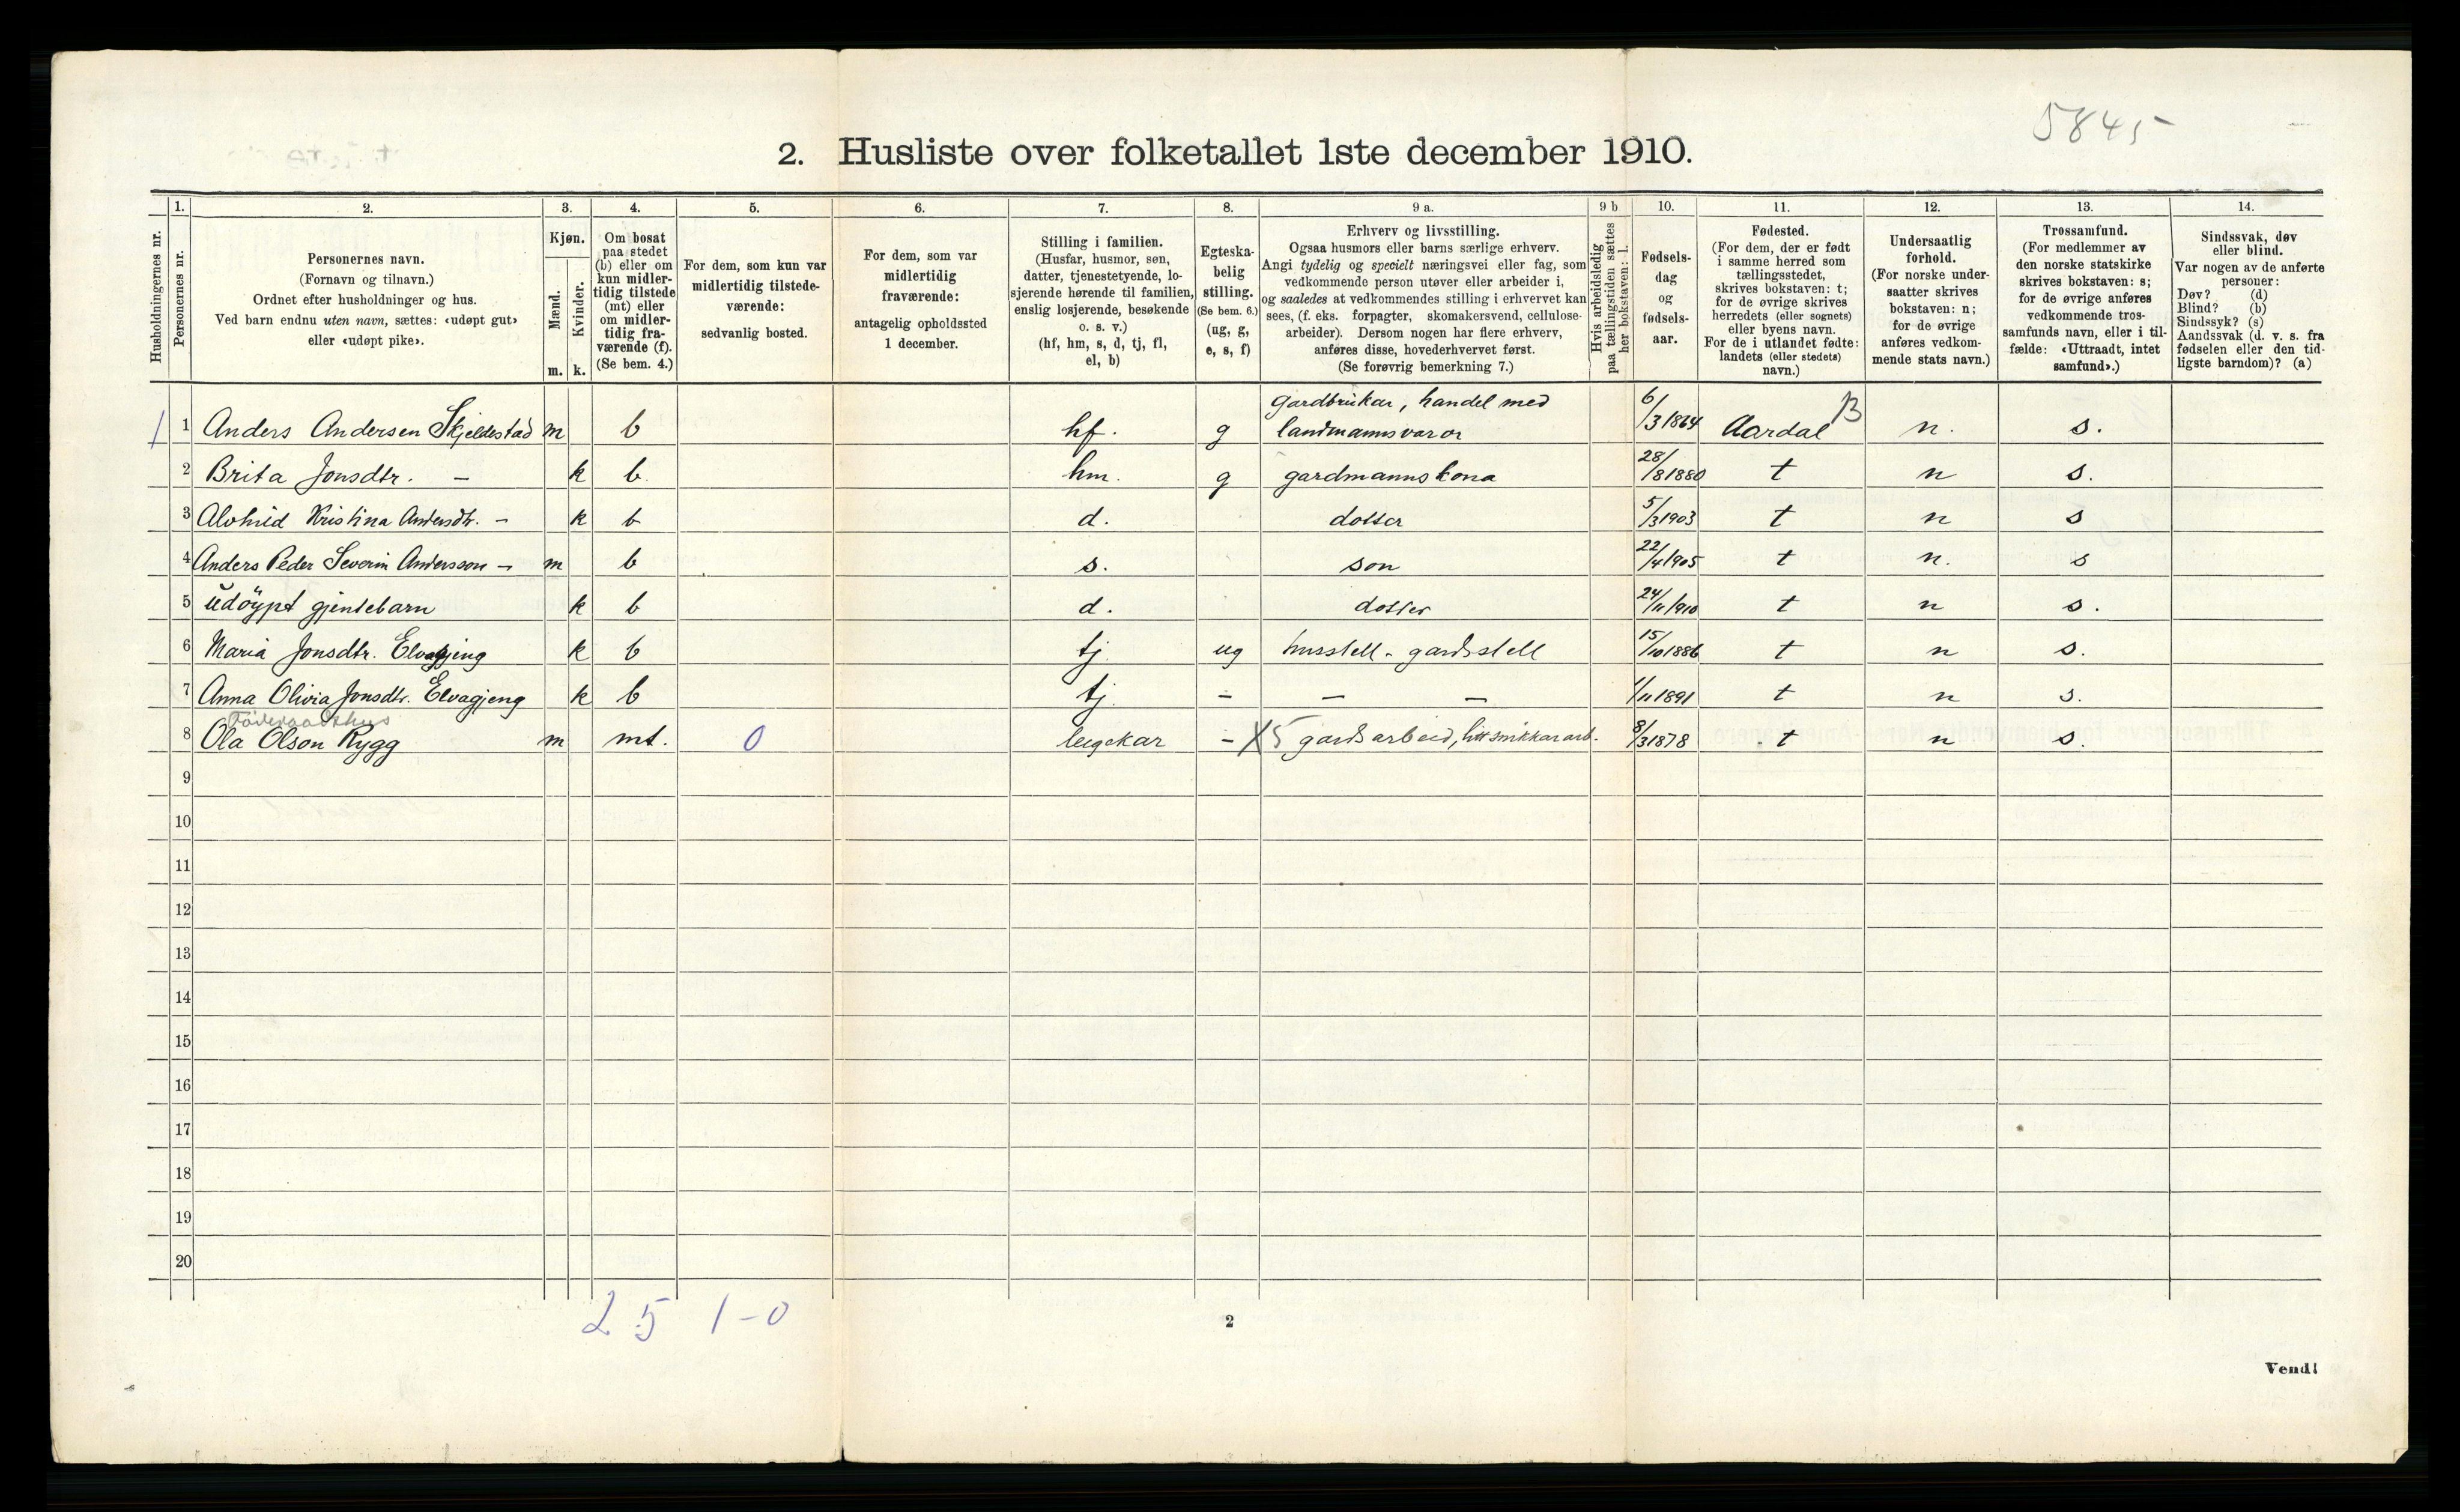 5845
2. Husliste over folketallet 1ste december 1910.
Husholdningernes nr.
1.
Personernes nr.
2.
Personernes navn.
(Fornavn og tilnavn.)
Ordnet efter husholdninger og hus.
Ved barn endnu uten navn, sættes: «udøpt gut»
eller «udøpt pike».
3.
Kjøn.
Mænd.
Kvinder.
m. k.
4.
Om bosat
paa stedet
(b) eller om
kun midler-
tidig tilstede
(mt) eller
om midler-
tidig fra-
værende (f).
(Se bem. 4.)
5.
For dem, som kun var
midlertidig tilstede-
værende:
sedvanlig bosted.
6.
For dem, som var
midlertidig
fraværende:
antagelig opholdssted
1 december.
7.
Stilling i familien.
(Husfar, husmor, søn,
datter, tjenestetyende, lo-
sjerende hørende til familien,
enslig losjerende, besøkende
o. s. v.)
(hf, hm, s, d, tj, fl,
el, b)
8.
Egteska-
belig
stilling.
(Se bem. 6.)
(ug, g,
e, s, f)
9 a.
Erhverv og livsstilling.
Ogsaa husmors eller barns særlige erhverv.
Angi tydelig og specielt næringsvei eller fag, som
vedkommende person utøver eller arbeider i,
og saaledes at vedkommendes stilling i erhvervet kan
sees, (f. eks. forpagter, skomakersvend, cellulose-
arbeider). Dersom nogen har flere erhverv,
anføres disse, hovederhvervet først.
(Se forøvrig bemerkning 7.)
9 b
Hvis arbeidsledig
paa tællingstiden sættes
her bokstaven: l.
10.
Fødsels-
dag
og
fødsels-
aar.
11.
Fødested.
(For dem, der er født
i samme herred som
tællingsstedet,
skrives bokstaven: t;
for de øvrige skrives
herredets (eller sognets)
eller byens navn.
For de i utlandet fødte:
landets (eller stedets)
navn.)
12.
Undersaatlig
forhold.
(For norske under-
saatter skrives
bokstaven: n;
for de øvrige
anføres vedkom-
mende stats navn.)
13.
Trossamfund.
(For medlemmer av
den norske statskirke
skrives bokstaven: s;
for de øvrige anføres
vedkommende tros-
samfunds navn, eller i til-
fælde: «Uttraadt, intet
samfund».)
14.
Sindssvak, døv
eller blind.
Var nogen av de anførte
personer:
Døv? (d)
Blind? (b)
Sindssyk? (s)
Aandssvak (d. v. s. fra
fødselen eller den tid-
ligste barndom)? (a)
1 1 Anders Andersen Skjeldestad m b hf. g gardbrukar, handel med landmannsvaror 6/3 1864 Aardal B n. s.
2 Brita Jonsdtr. – k b. hm. g gardmannskona 28/8 1880 t n s.
3 Alvhild Kristina Andersdtr. – k b d. dotter 5/3 1903 t n s
4 Anders Peder Severin Andersson – m b s. son 22/4 1905 t n. s
5 udöypt gjentebarn k b d. dotter 24/11 1910 t n s.
6 Maria Jonsdtr. Elvagjeng k b tj. ug husstell - gardsstell 15/10 1886 t n s.
7 Anna Olivia Jonsdtr. Elvagjeng k b tj. – – – 1/11 1891 t n s.
Föderaadshus
8 Ola Olson Rygg m mt. 0 leigekar – X5 gardsarbeid, litt snikkararb. 8/3 1878 t n s.
9
10
11
12
13
14
15
16
17
18
19
20
2 5 1 - 0
2
Vend!